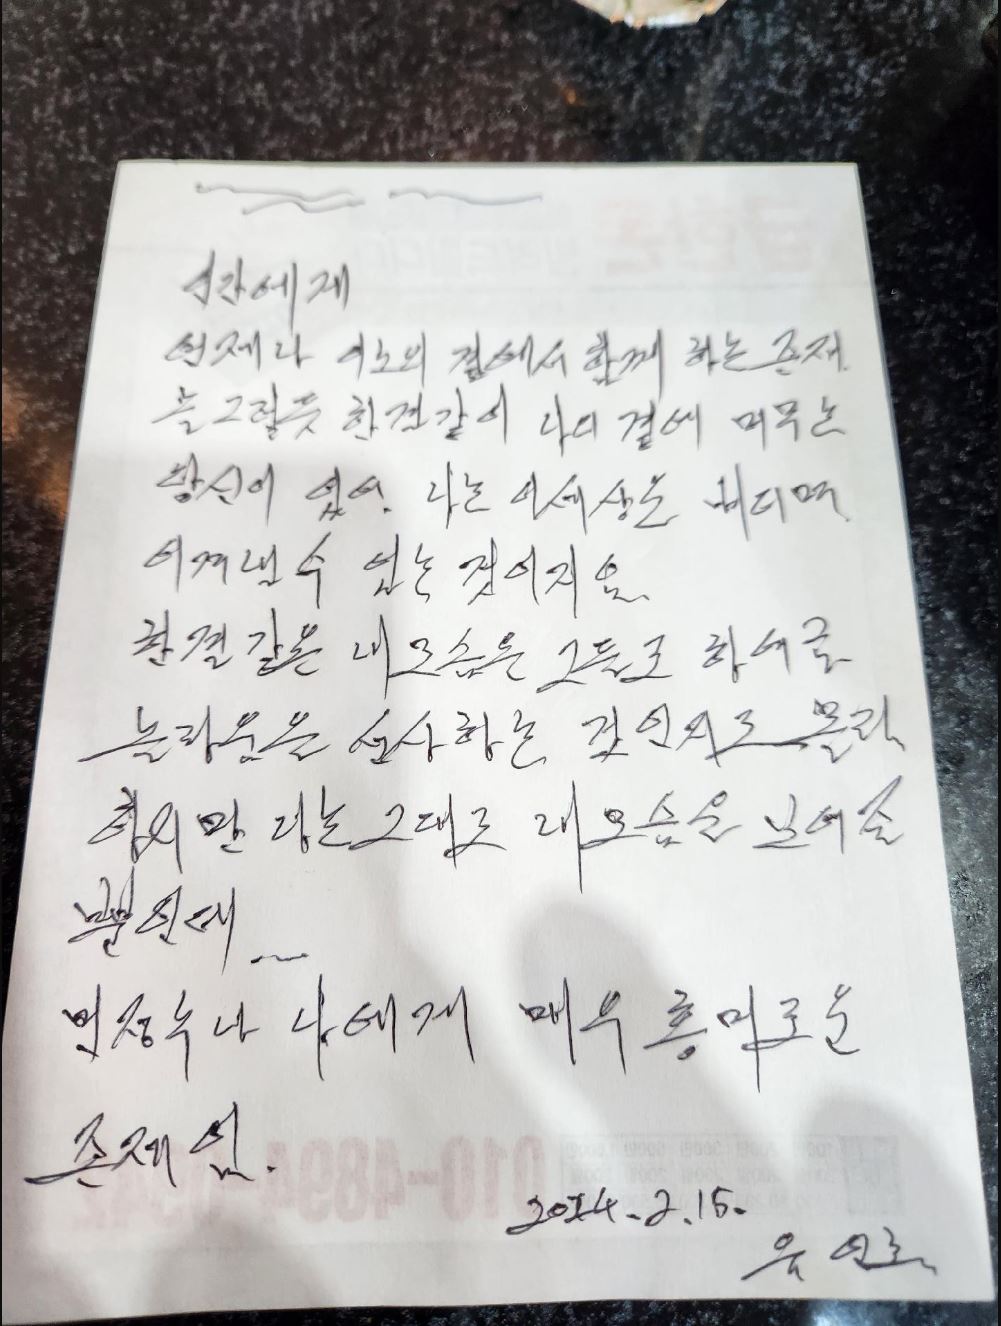 언제나 나의 곁에서 함께 하는 존재.
늘 그럴듯 한결같이 나의 곁에 머무는
당신이 없어. 나는 이세상은 버티며
이겨낼 수 없는 것이지요.
한결 같은 내모습은 그들로 하여금
놀라움은 선사하는 것인지도 몰라.
하지만 나는 그대로 내모습을 보여줄
뿐인데
나에게 매우 흥미로운
존재임.
010-4894-
2024.2.15.